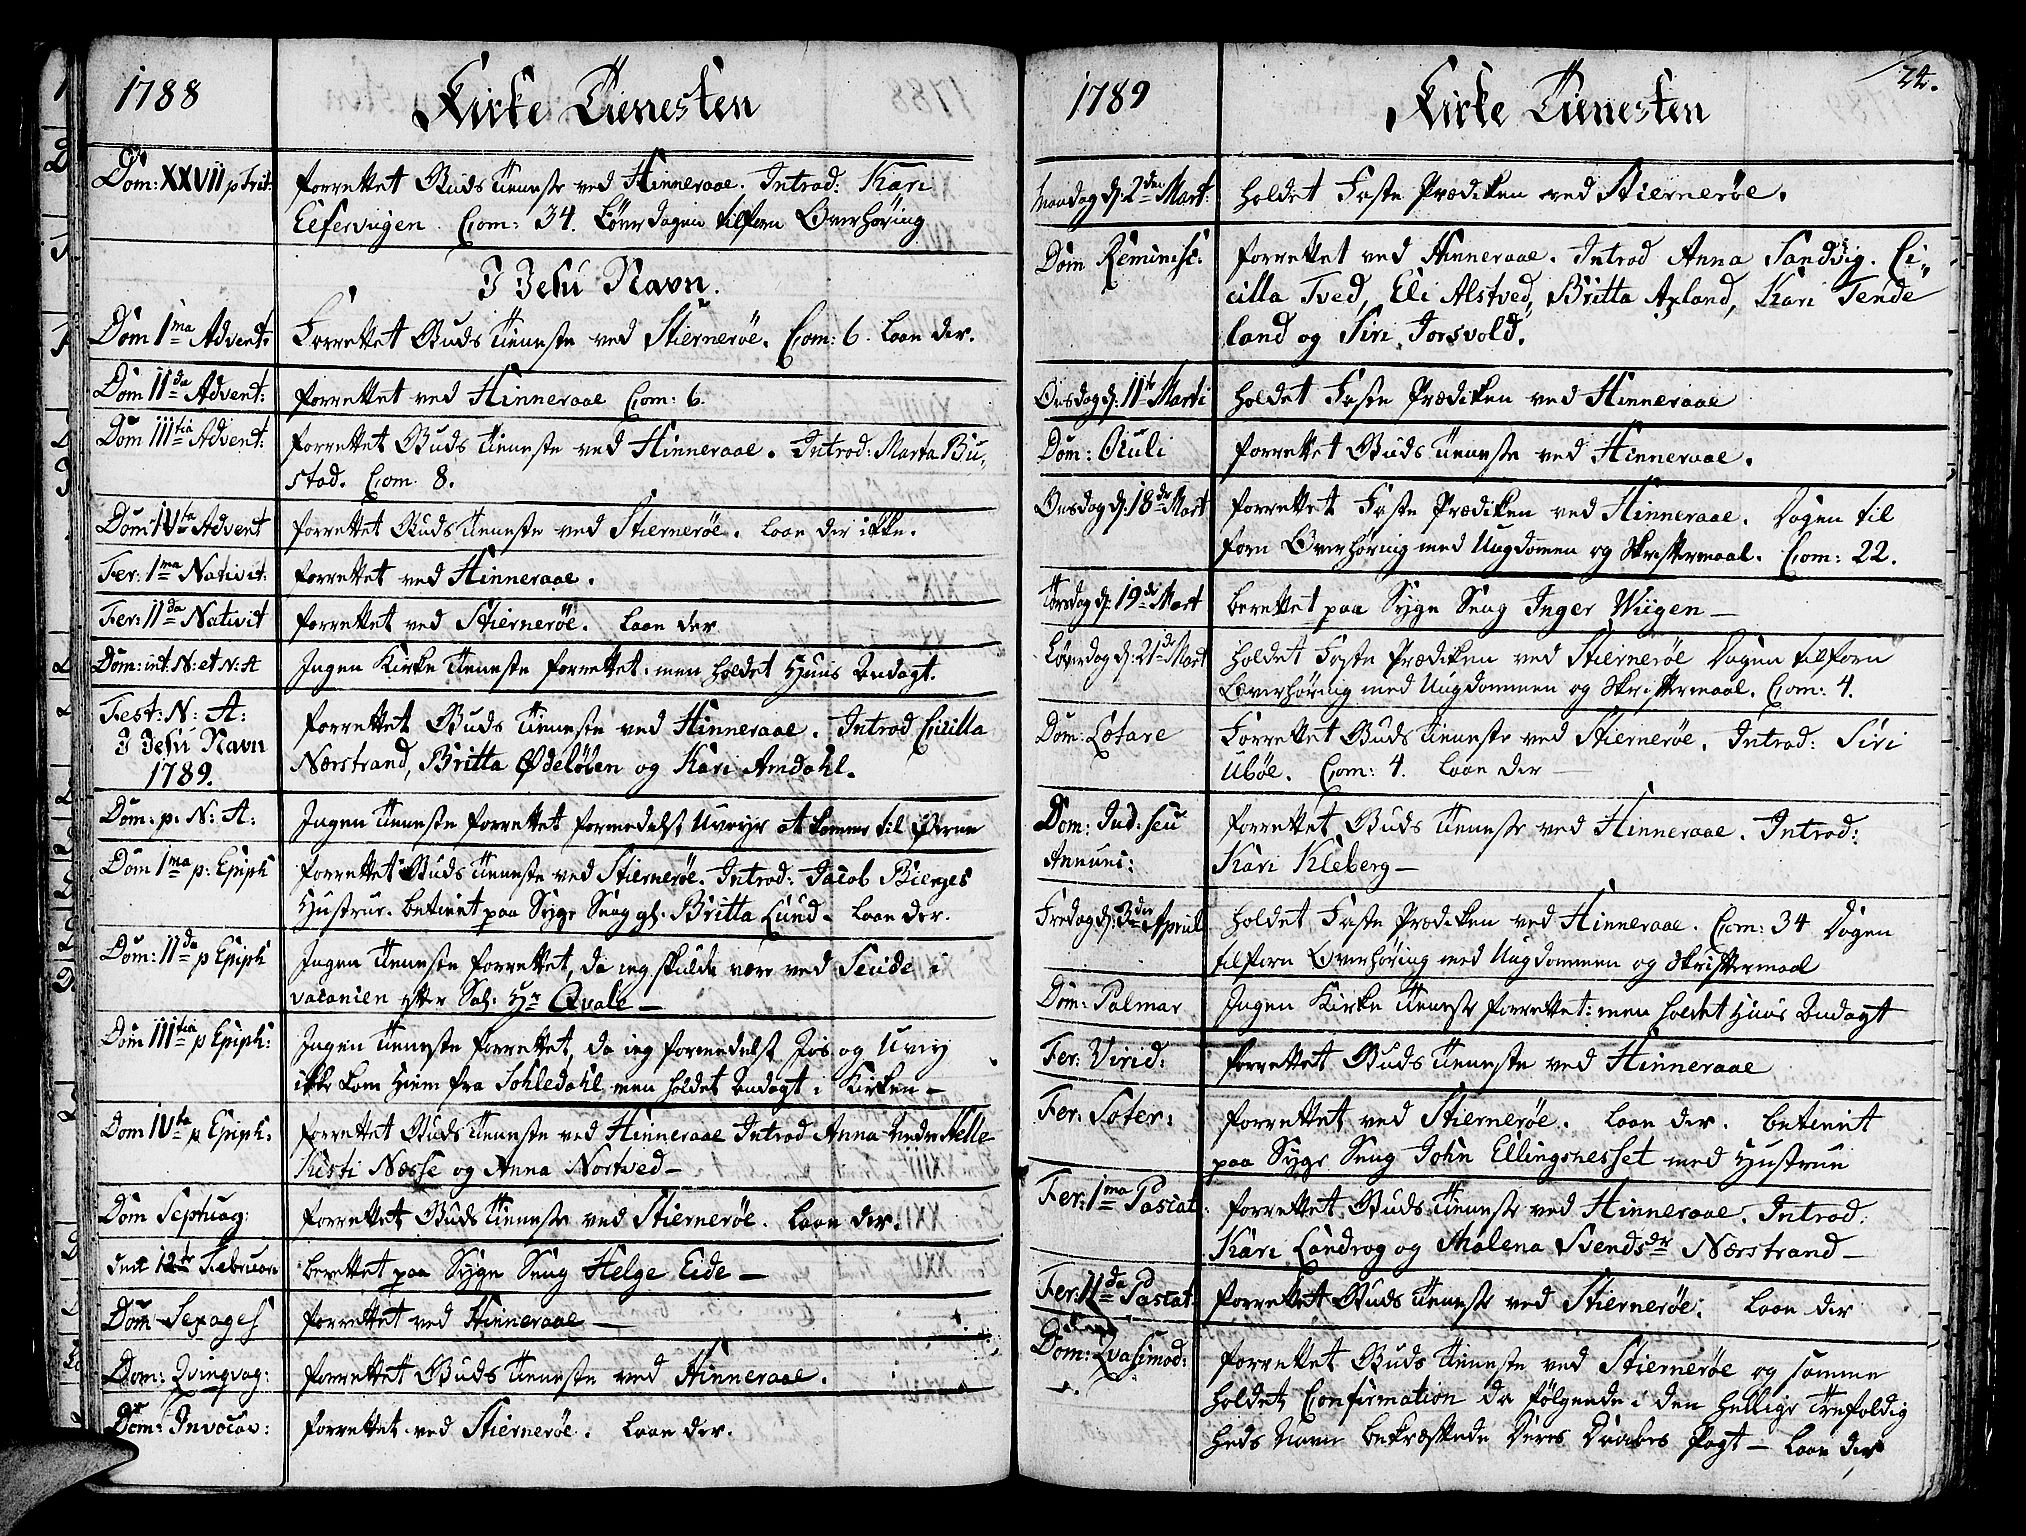 1788 Kirke Tienesten
Dom: XXVII p Trit: forrettet Guds Tieneste ved Hinneraae. Introd: Kari
Elfervigen. Com: 34. Løverdagen tilforn Overhøring
I Jesu Navn.
Dom 1ma Advent: Forrettet Guds Tieneste ved Stiernerøe. Com: 6. laae der.
Dom IIda Advent: forrettet ved Hinneraae Com: 6.
Dom IIItia Advent: forrettet Guds Tieneste ved Hinneraae. Introd: Marta Bu-
stad. Com. 8.
Dom IVta Advent forrettet Guds Tieneste ved Stiernerøe. laae der ikke.
Fer: 1ma Nativit: forrettet ved Hinneraae.
Fer: IIda Nativit forrettet ved Stiernerøe. laae der
Dom: int: N: et N: A Ingen Kirke Tieneste forrettet: men holdet Huus Andagt.
Fest: N: A: forrettet Guds Tieneste ved Hinneraae. Introd Cicilla
I Jesu Navn Nærstrand, Britta Ødeløen og Kari Amdahl.
1789.
Dom: p: N: A: Ingen Tieneste forrettet formedelst Uveyr at komme til Øerne
Dom 1ma p: Epiph forrettet Guds Tieneste ved Stiernerøe. Introd: Jacob Bierges
Hustrue. betient paa Syge Seng gl. Britta Lund. laae der.
Dom: IIda p Epiph Ingen Tieneste forrettet, da ieg skulde være ved Seude i
vacancen efter Sal: Hr Qvale —
Dom IIItia p Epiph: Ingen Tieneste forrettet, da ieg formedelst Iis og Uveir
ikke kom Hiem fra Sohledahl men holdet Andagt i Kirken —
Dom IVta p Epiph. forrettet Guds Tieneste ved Hinneraae Introd Anna Nedre Helle
Kisti Næsse og Anna Nortved —
Dom Septuag: forrettet Guds Tieneste ved Stiernerøe. laae der.
den 12te Februari berettet paa Syge Seng Helge Eide —
Dom Sexages forrettet ved Hinneraae —
Dom: Qvinqvag: forrettet Guds Tieneste ved Hinneraae.
Dom: Invocav: forrettet ved Stiernerøe. laae der.
1789 Kirke Tienesten 24.
Mandag d: 2den Mart: holdet Faste Prædiken ved Stiernerøe.
Dom Reminisc: forrettet ved Hinneraae. Introd Anna Sandvig. Ci-
cilla Tved, Eli Alstved, Britta Axland, Kari Tende
land og Siri Jorsvold.
Onsdag d: 11te Marti holdet Faste Prædiken ved Hinneraae
Dom: Oculi forrettet Guds Tieneste ved Hinneraae.
Onsdag d: 18de Mart forrettet Faste Prædiken ved Hinneraae. Dagen til
forn Overhøring med Ungdomen og Skriftermaal. Com: 22.
Torsdag d: 19de Mart berettet paa Syge Seng Inger Wiigen —
Løverdag d: 21de Mart holdet Faste Prædiken ved Stiernerøe Dagen tilforn
Overhøring med Ungdommen og Skriftermaal. Com: 4.
Dom: Lætare Forrettet Guds Tieneste ved Stiernerøe. Introd: Siri
Ubøe. Com: 4. laae der —
Dom: Jud: seu forrettet Guds Tieneste ved Hinneraae. Introd:
Annunc: Kari Kleberg —
Fredag d: 3die April holdet Faste Prædiken ved Hinneraae. Com: 34 Dagen
tilforn Overhøring med Ungdommen og Skriftermaal
Dom: Palmar Ingen Kirke Tieneste forrettet: men holdet Huus Andagt
Fer: Virid: forrettet Guds Tieneste ved Hinneraae
Fer: Soter: forrettet ved Stiernerøe. laae der. betient
paa Syge Seng John Ellingsnesset med Hustrue
Fer: 1ma Pascat: forrettet Guds Tieneste ved Hinneraae. Introd:
Kari Landrog og Malena Svendsdr Nærstrand —
Fer: IIda Pascat: forrettet Guds Tieneste ved Stiernerøe. laae der
Dom: Qvasimod: forrettet Guds Tieneste ved Stiernerøe og samme
holdet Confirmation da følgende i den Hellige Trefoldig
heds Navn bekræftede Deres Daabes Pagt — laae der